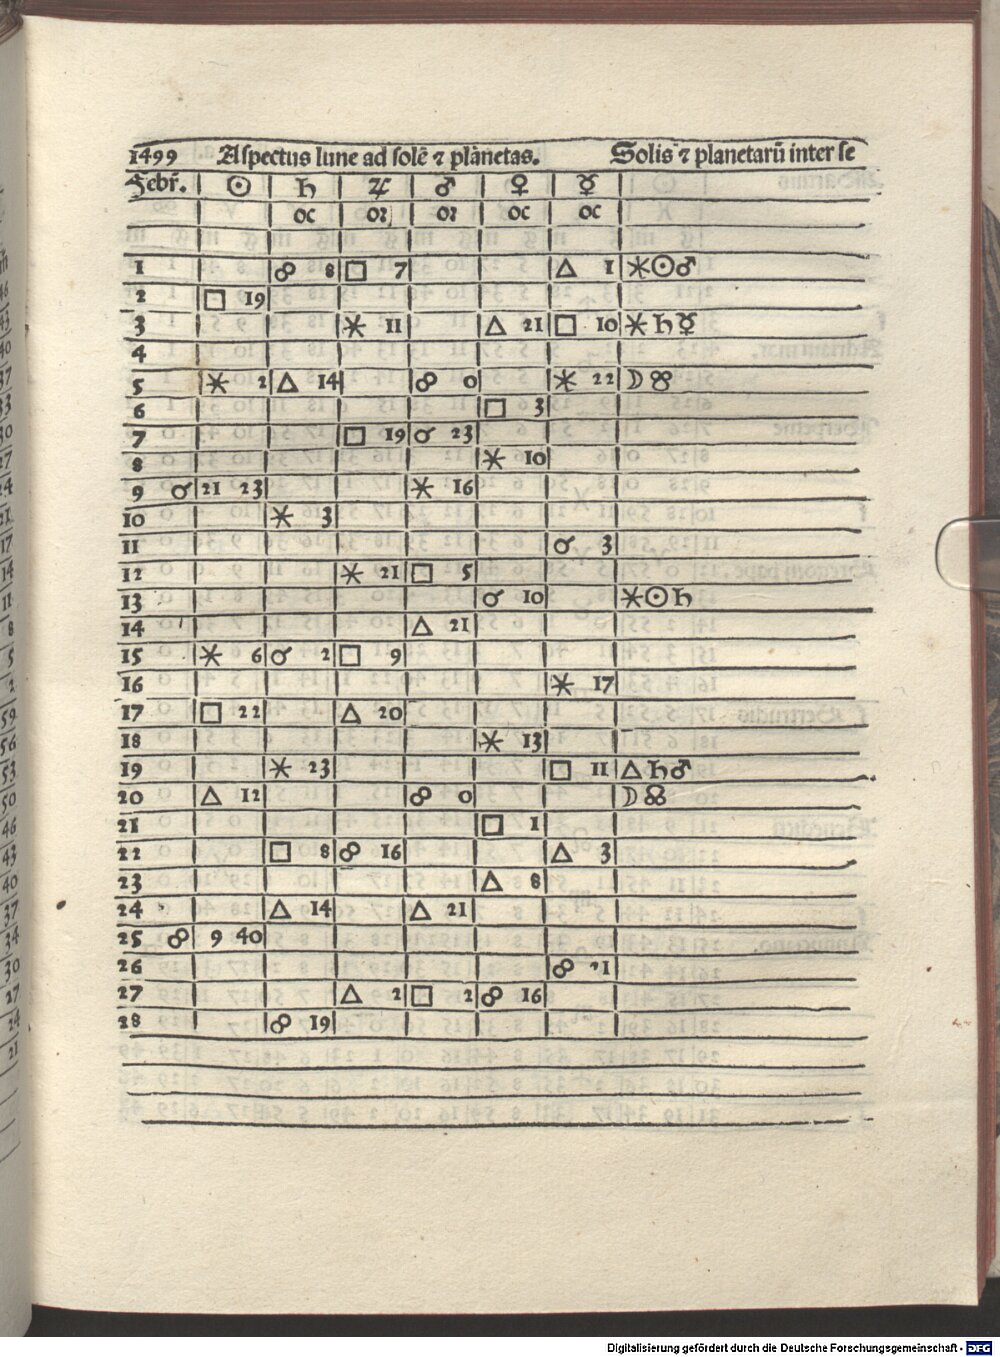 1499 Aspectus lune ad solē ⁊ planetas. Solis ⁊ planetarū inter se
Febr̄. ☉ ♄ ♃ ♂ ♀ ☿
oc oꝛ oꝛ oc oc
1 ☍ 8 □ 7 △ 1 ⚹☉♂
2 □ 19
3 ⚹ 11 △ 21 □ 10 ⚹♄☿
4
5 ⚹ 2 △ 14 ☍ 0 ⚹ 22 ☽☋
6 □ 3
7 □ 19 ☌ 23
8 ⚹ 10
9 ☌ 21 23 ⚹ 16
10 ⚹ 3
11 ☌ 3
12 ⚹ 21 □ 5
13 ☌ 10 ⚹☉♄
14 △ 21
15 ⚹ 6 ☌ 2 □ 9
16 ⚹ 17
17 □ 22 △ 20
18 ⚹ 13
19 ⚹ 23 □ 11 △♄♂
20 △ 12 ☍ 0 ☽☊
21 □ 1
22 □ 8 ☍ 16 △ 3
23 △ 8
24 △ 14 △ 21
25 ☍ 9 40
26 ☍ 21
27 △ 2 □ 2 ☍ 16
28 ☍ 19
Digitalisierung gefördert durch die Deutsche Forschungsgemeinschaft - DFG